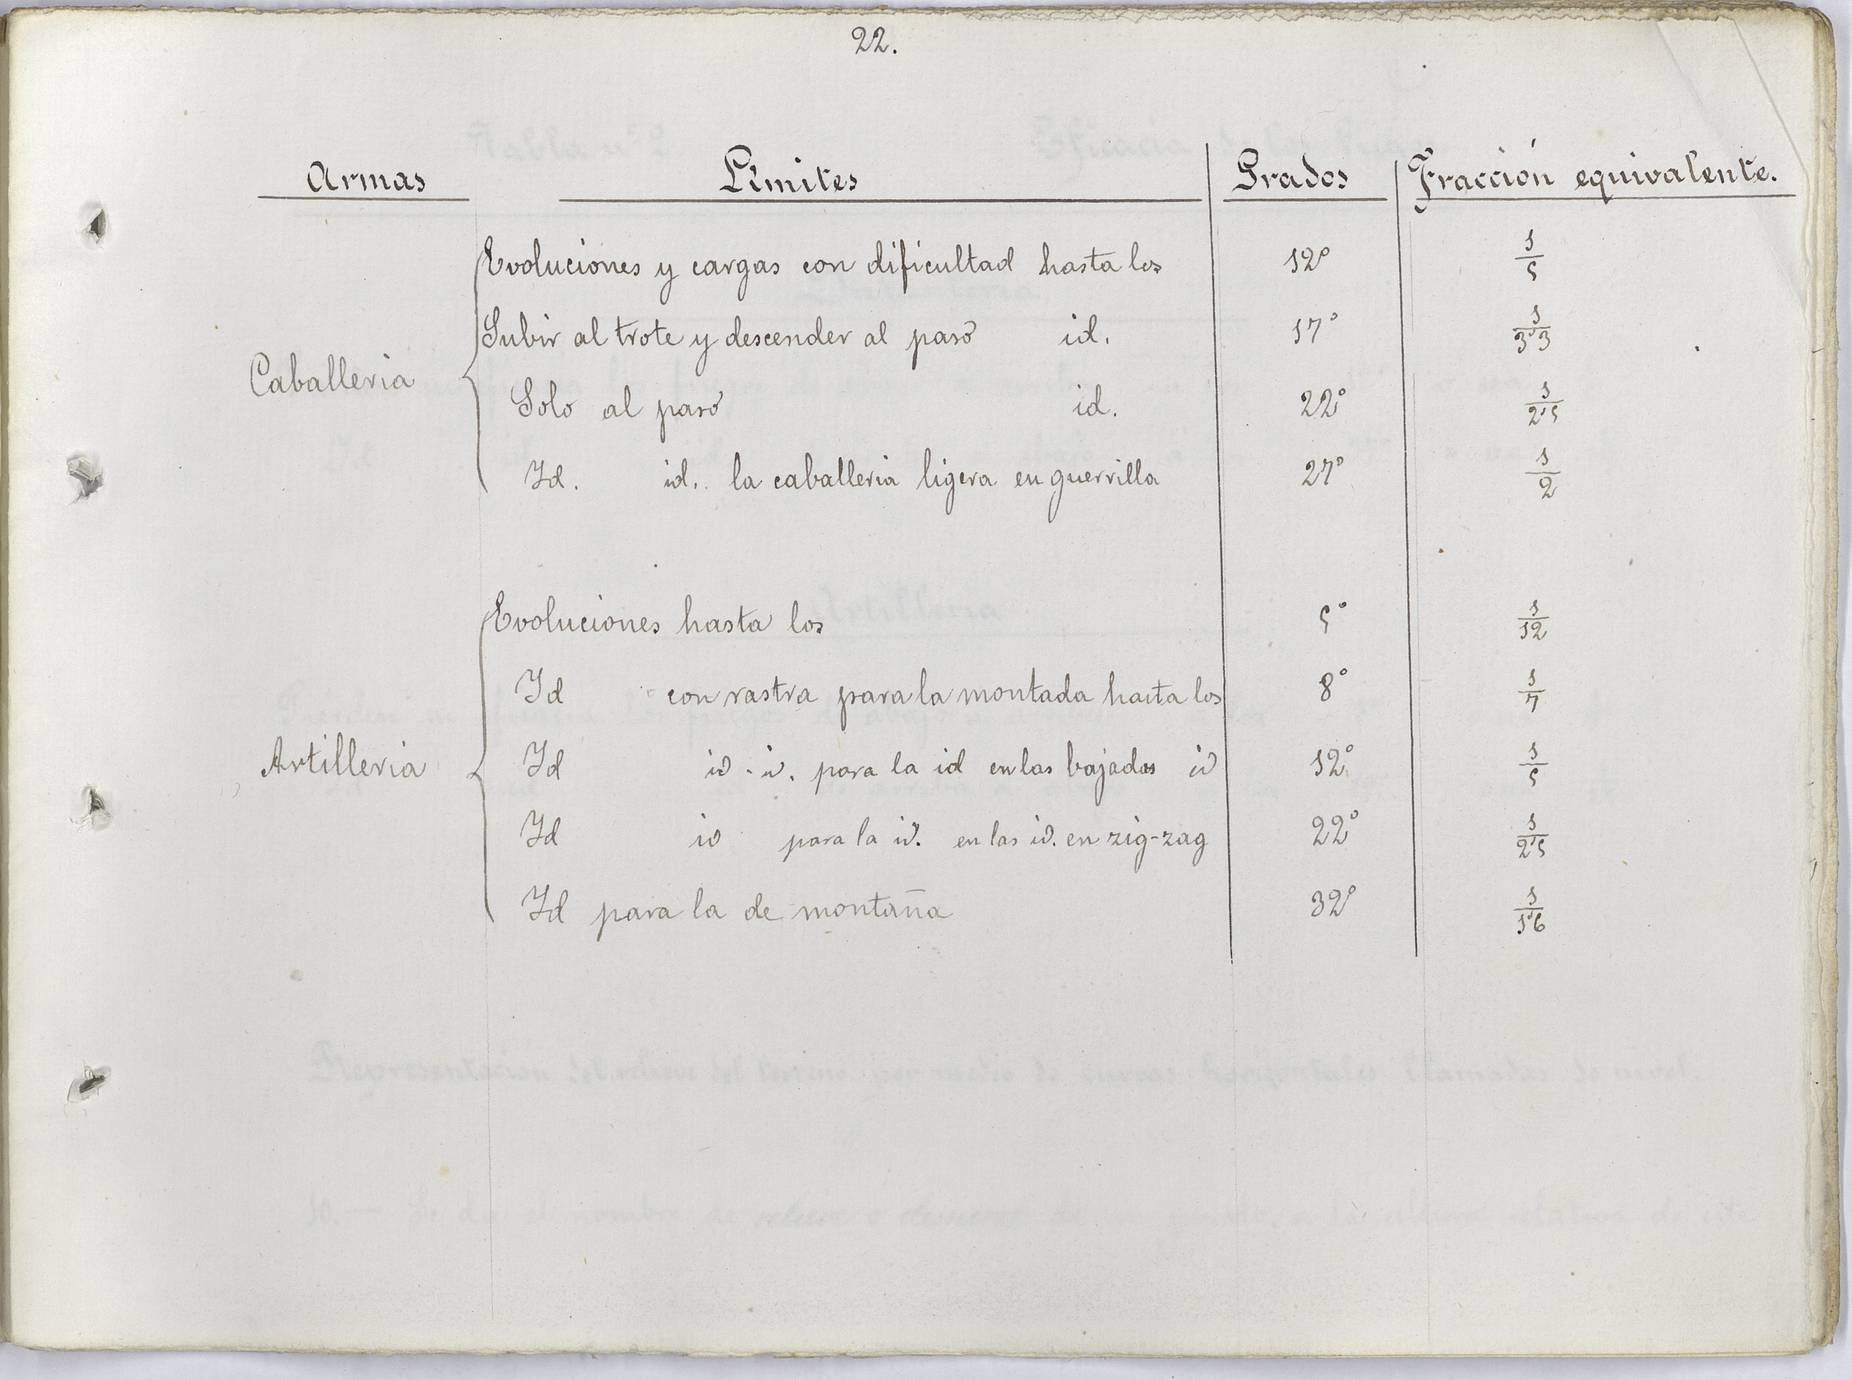 22.
Armas Límites Grados Fracción equivalente.
Evoluciones y cargas con dificultad hasta los 12º 1/5
Subir al trote y descender al paso id. 17º 1/3'3
Caballeria
Solo al paso id. 22º 1/2'5
Id. id. la caballeria ligera en guerrilla 27º 1/2
Evoluciones hasta los 5º 1/12
Id con rastra para la montada hasta los 8º 1/7
Artilleria Id id. id. para la id en las bajadas id 12º 1/5
Id id para la id. en las id. en zig-zag 22º 1/2'5
Id para la de montaña 32º 1/1'6